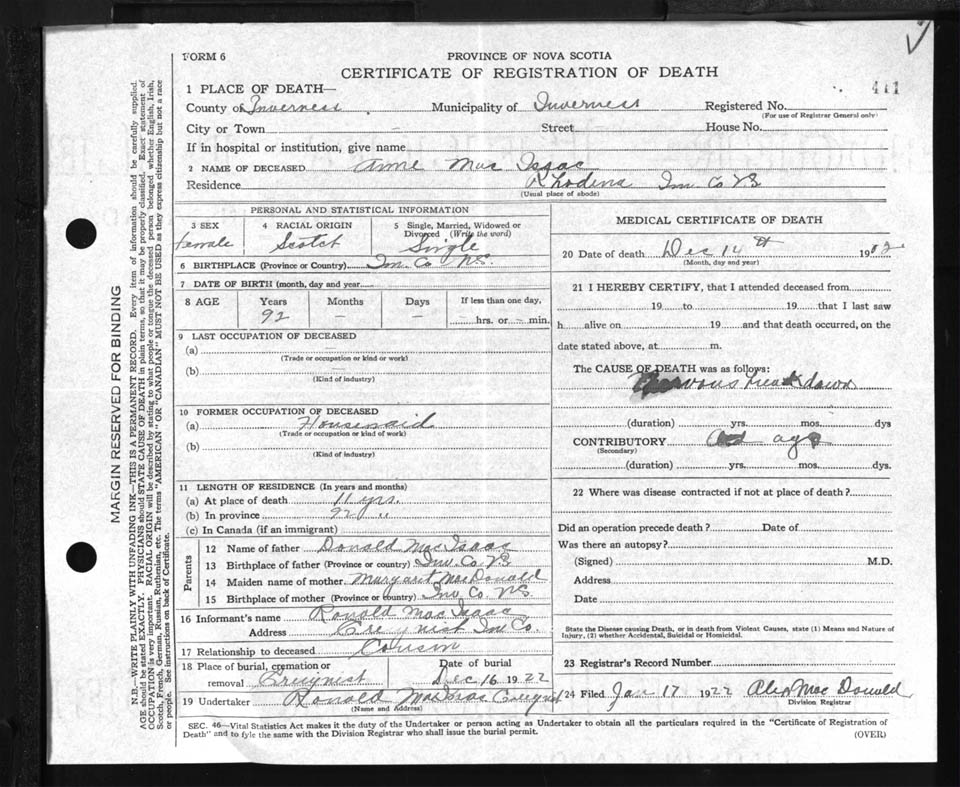 FORM 6
PROVINCE OF NOVA SCOTIA
CERTIFICATE OF REGISTRATION OF DEATH
1 PLACE OF DEATH—
441
County of Inverness Municipality of Inverness Registered No.
(For use of Registrar General only)
City or Town – Street House No.
If in hospital or institution, give name
2 NAME OF DECEASED Anne Mac Isaac
Residence Rhodena Inv Co NS
(Usual place of abode)
PERSONAL AND STATISTICAL INFORMATION
3 SEX
female
4 RACIAL ORIGIN
Scotch
5 Single, Married, Widowed or Divorced (Write the word)
Single
6 BIRTHPLACE (Province or Country) Inv Co NS.
7 DATE OF BIRTH (month, day and year)
8 AGE Years Months Days If less than one day,
92 – – hrs. or – min.
9 LAST OCCUPATION OF DECEASED
(a)
(Trade or occupation or kind or work)
(b) —
(Kind of industry)
10 FORMER OCCUPATION OF DECEASED
(a) Housemaid
(Trade or occupation or kind of work)
(b)
(Kind of industry)
11 LENGTH OF RESIDENCE (In years and months)
(a) At place of death 11 yrs.
(b) In province 92 "
(c) In Canada (if an immigrant)
Parents
12 Name of father Donald Mac Isaac
13 Birthplace of father (Province or country) Inv. Co. NS
14 Maiden name of mother Margaret MacDonald
15 Birthplace of mother (Province or country) Inv Co. NS.
16 Informant's name Ronald Mac Isaac
Address Creignish Inv Co.
17 Relationship to deceased Cousin
18 Place of burial, cremation or Date of burial
removal Creignish Dec 16 1922
19 Undertaker Ronald MacIsaac Creignish
(Name and Address)
MEDICAL CERTIFICATE OF DEATH
20 Date of death Dec 14th 19
(Month, day and year)
21 I HEREBY CERTIFY, that I attended deceased from
19 to 19 that I last saw
h alive on 19 and that death occurred, on the
date stated above, at m.
The CAUSE OF DEATH was as follows:
Nervous breakdown
(duration) yrs. mos. dys
CONTRIBUTORY Old age
(Secondary)
(duration) yrs. mos. dys.
22 Where was disease contracted if not at place of death?
Did an operation precede death? Date of
Was there an autopsy?
(Signed) M.D.
Address
Date
State the Disease causing Death, or in death from Violent Causes, state (1) Means and Nature of
Injury, (2) whether Accidental, Suicidal or Homicidal.
23 Registrar's Record Number
24 Filed Jan 17 1922 Alex Mac Donald
Division Registrar
SEC. 46—Vital Statistics Act makes it the duty of the Undertaker or person acting as Undertaker to obtain all the particulars required in the "Certificate of Registration of
Death" and to fyle the same with the Division Registrar who shall issue the burial permit.
(OVER)
MARGIN RESERVED FOR BINDING
N.B.—WRITE PLAINLY WITH UNFADING INK—THIS IS A PERMANENT RECORD. Every item of information should be carefully supplied.
AGE should be stated EXACTLY. PHYSICIANS should STATE CAUSE OF DEATH in plain terms, so that it may be properly classified. Exact statement of
OCCUPATION is very important. RACIAL ORIGIN will be described by stating to what people or tongue the deceased person belonged whether English, Irish,
Scotch, French, German, Russian, Ruthenian, etc. The terms "AMERICAN" OR "CANADIAN" MUST NOT BE USED as they express citizenship but not a race
or people. See instructions on back of Certificate.